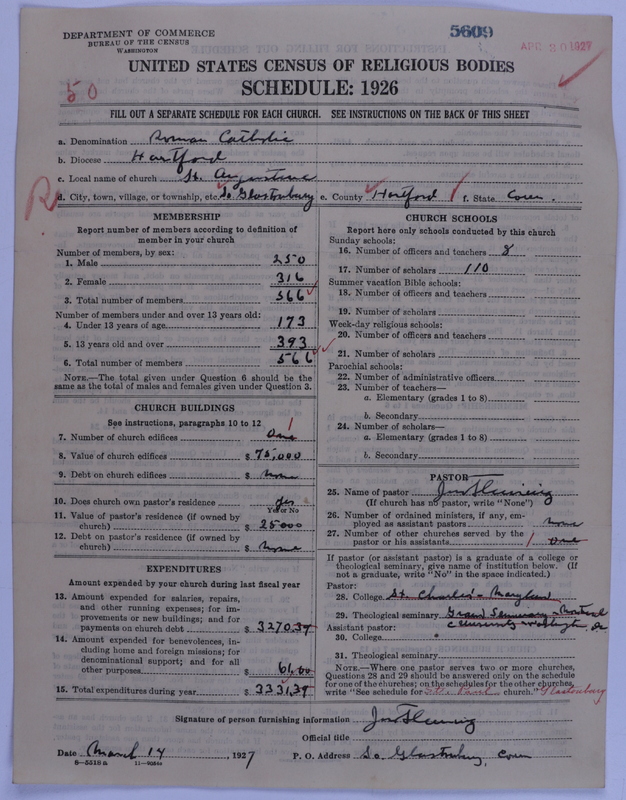 DEPARTMENT OF COMMERCE
BUREAU OF THE CENSUS
WASHINGTON
5609
APR 20 1927
UNITED STATES CENSUS OF RELIGIOUS BODIES
SCHEDULE: 1926
50
FILL OUT A SEPARATE SCHEDULE FOR EACH CHURCH. SEE INSTRUCTIONS ON THE BACK OF THIS SHEET
a. Denomination Roman Catholic
b. Diocese Hartford
c. Local name of church St. Augustine
R
d. City, town, village, or township, etc. So Glastonbury e. County Hartford f. State Conn.
MEMBERSHIP
Report number of members according to definition of
member in your church
Number of members, by sex:
1. Male 250
2. Female 316
3. Total number of members 566
Number of members under and over 13 years old:
4. Under 13 years of age 173
5. 13 years old and over 393
6. Total number of members 566
NOTE.—The total given under Question 6 should be the
same as the total of males and females given under Question 3.
CHURCH BUILDINGS
See instructions, paragraphs 10 to 12
7. Number of church edifices One 1
8. Value of church edifices $ 75,000
9. Debt on church edifices $ None
10. Does church own pastor's residence yes
Yes or No
11. Value of pastor's residence (if owned by
church) $ 25000
12. Debt on pastor's residence (if owned by
church) $ None
EXPENDITURES
Amount expended by your church during last fiscal year
13. Amount expended for salaries, repairs,
and other running expenses; for im-
provements or new buildings; and for
payments on church debt $ 3270.37
14. Amount expended for benevolences, in-
cluding home and foreign missions; for
denominational support; and for all
other purposes $ 61.00
15. Total expenditures during year $ 3331.37
CHURCH SCHOOLS
Report here only schools conducted by this church
Sunday schools:
16. Number of officers and teachers 8
17. Number of scholars 110
Summer vacation Bible schools:
18. Number of officers and teachers
19. Number of scholars
Week-day religious schools:
20. Number of officers and teachers
21. Number of scholars
Parochial schools:
22. Number of administrative officers
23. Number of teachers—
a. Elementary (grades 1 to 8)
b. Secondary
24. Number of scholars—
a. Elementary (grades 1 to 8)
b. Secondary
PASTOR
25. Name of pastor Jno Fleming
(If church has no pastor, write "None")
26. Number of ordained ministers, if any, em-
ployed as assistant pastors none
27. Number of other churches served by the
pastor or his assistants 1 one
If pastor (or assistant pastor) is a graduate of a college or
theological seminary, give name of institution below. (If
not a graduate, write "No" in the space indicated.)
Pastor:
28. College St. Charles - Maryland
29. Theological seminary Grand Seminary - Montreal
Assistant pastor: C University Washington, DC
30. College
31. Theological seminary
NOTE.—Where one pastor serves two or more churches,
Questions 28 and 29 should be answered only on the schedule
for one of the churches; on the schedules for the other churches,
write "See schedule for church." Glastonbury
Signature of person furnishing information Jno Fleming
Official title
Date March 14, 1927 P. O. Address So Glastonbury, Conn
8—5518a